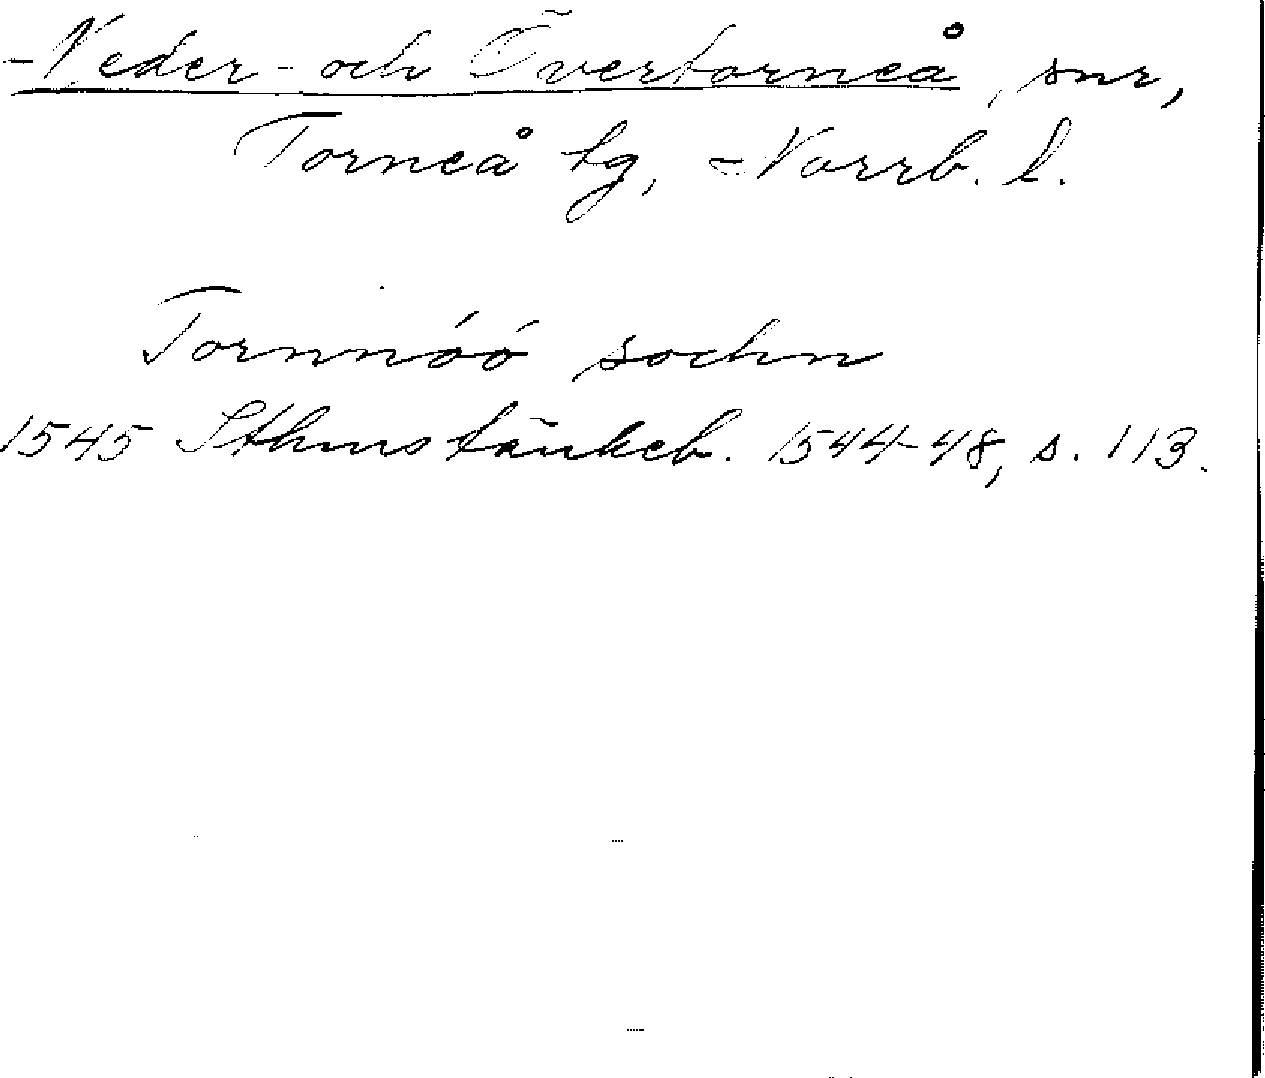 Neder- och Övertorneå, snr,
Torneå tg, Norrb. l.
Tornnóó sochn
1545 Sthms tänkeb. 1544-48, s. 113.